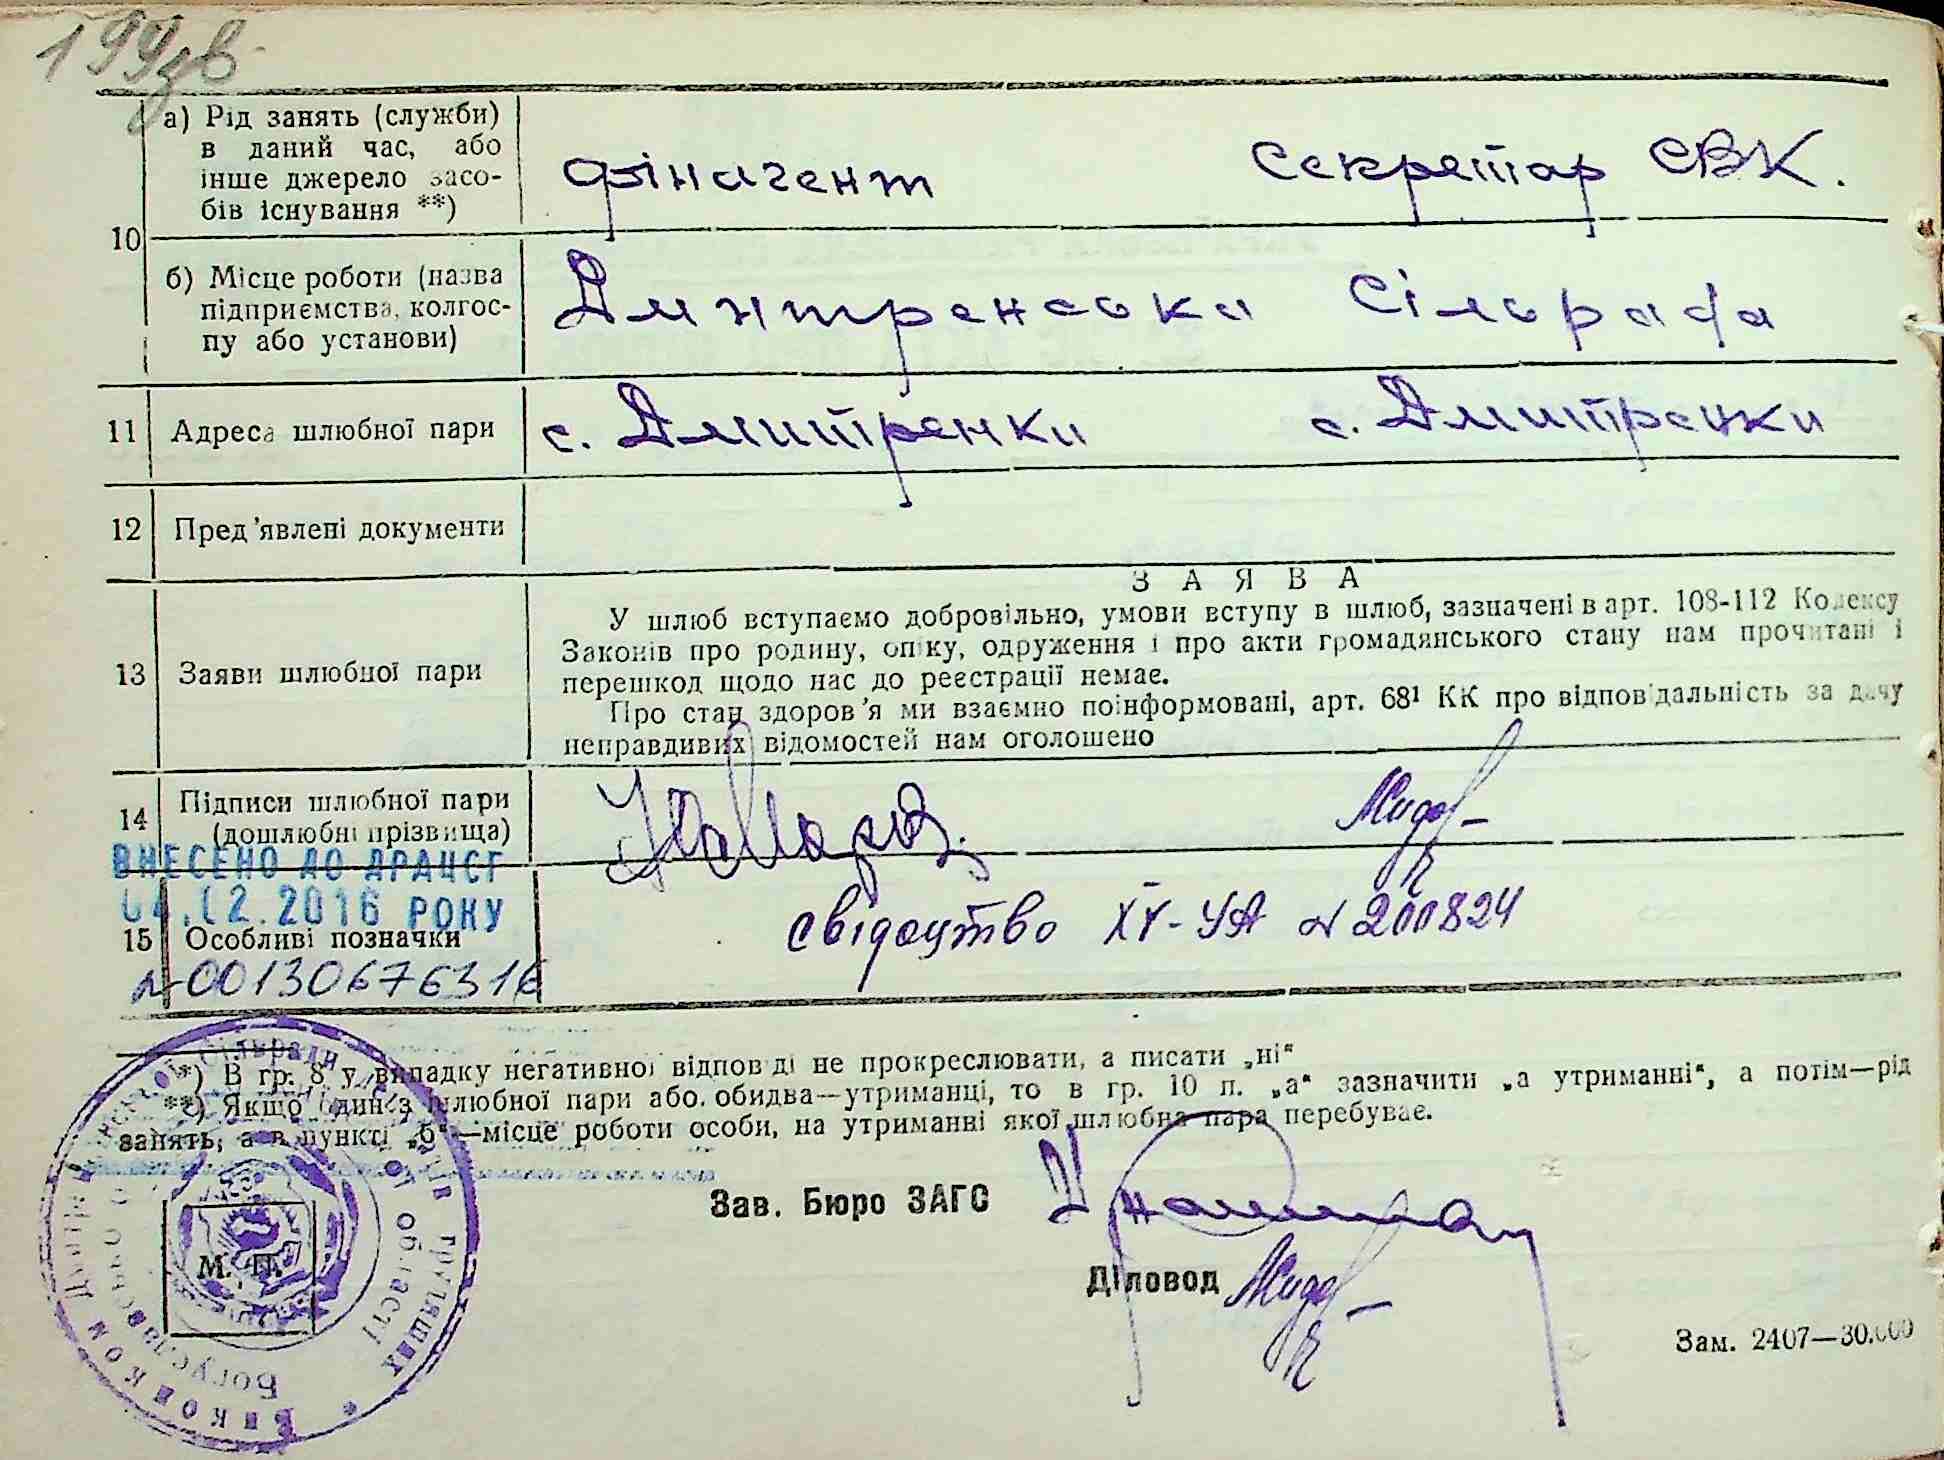 199зв
10
а) Рід занять (служби)
в даний час, або
інше джерело засо-
бів існування **)
фінагент
Секретар СВК.
б) Місце роботи (назва
підприємства, колгос-
пу або установи)
Дмитренська Сільрада
11 Адреса шлюбної пари
с. Дмитренки
с. Дмитренки
12 Пред'явлені документи
13 Заяви шлюбної пари
ЗАЯВА
У шлюб вступаємо добровільно, умови вступу в шлюб, зазначені в арт. 108-112 Кодексу
Законів про родину, опіку, одруження і про акти громадянського стану нам прочитані і
перешкод щодо нас до реєстрації немає.
Про стан здоров'я ми взаємно поінформовані, арт. 68¹ КК про відповідальність за дачу
неправдивих відомостей нам оголошено
14 Підписи шлюбної пари
(дошлюбні прізвища)
ВНЕСЕНО ДО ДРАЦСГ
02.2016 РОКУ
15 Особливі позначки
свідоцтво ХУ-УА № 200824
№ 00130676316
*) В гр. 8 у випадку негативної відповіді не прокреслювати, а писати „ні“
**) Якщо один з шлюбної пари або обидва—утриманці, то в гр. 10 п. „а“ зазначити „а утриманні“, а потім—рід
занять, а в пункті „б“—місце роботи особи, на утриманні якої шлюбна пара перебуває.
Зав. Бюро ЗАГС
Діловод
М. П.
Виконком Дмитренської Сільради трудящих
Богуславського області
Зам. 2407—30.000